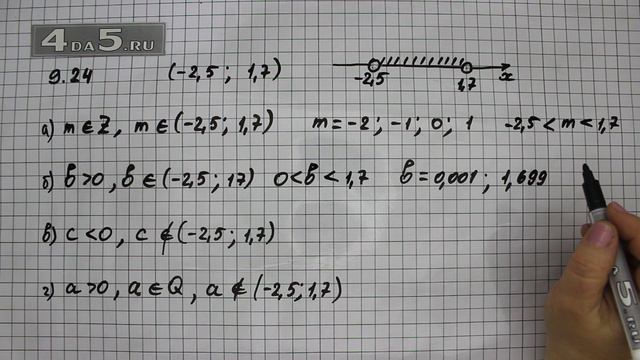 4DA5.RU
9.24 (-2,5; 1,7) -2,5 1,7 x
а) m∈Z, m∈(-2,5; 1,7) m=-2; -1; 0; 1 -2,5<m<1,7
б) b>0, b∈(-2,5; 17) 0<b<1,7 b=0,001; 1,699
в) c<0, c∉(-2,5; 1,7)
г) a>0, a∈Q, a∉(-2,5; 1,7)